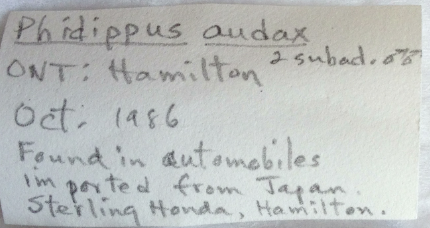 Phidippus audax
ONT: Hamilton 2 subad. ♂♂
Oct. 1986
Found in automobiles
imported from Japan.
Sterling Honda, Hamilton.